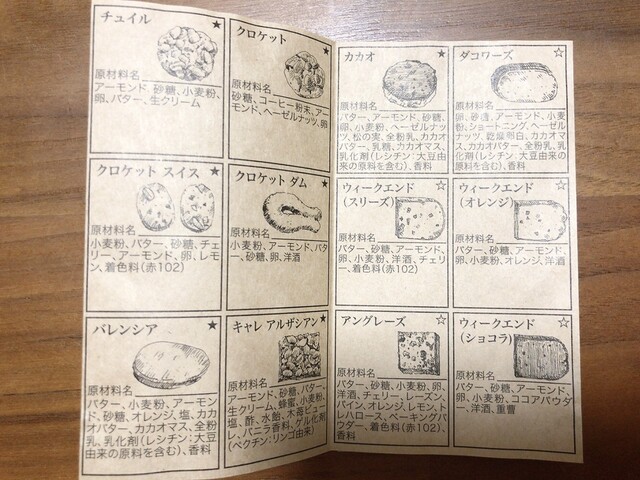 チュイル
★
原材料名
アーモンド、砂糖、小麦粉、
卵、バター、生クリーム
クロケット
★
原材料名
砂糖、コーヒー粉末、アー
モンド、ヘーゼルナッツ、卵
クロケット スイス
★
原材料名
小麦粉、バター、砂糖、チェ
リー、アーモンド、卵、レモ
ン、着色料(赤102)
クロケット ダム
★
原材料名
小麦粉、アーモンド、バタ
ー、砂糖、卵、洋酒
バレンシア
★
原材料名
バター、小麦粉、アーモン
ド、砂糖、オレンジ、塩、カカ
オバター、カカオマス、全粉
乳、乳化剤(レシチン:大豆
由来の原料を含む)、香料
キャレ アルザシアン
★
原材料名
アーモンド、砂糖、バター、
生クリーム、蜂蜜、小麦粉、
塩、酢、水飴、木苺ピュー
レ、バニラ香料、ゲル化剤
(ペクチン:リンゴ由来)
カカオ
★
原材料名
バター、アーモンド、砂糖、
卵、小麦粉、ヘーゼルナッ
ツ、松の実、全粉乳、カカオ
バター、乳糖、カカオマス、
乳化剤(レシチン:大豆由来
の原料を含む)、香料
ダコワーズ
☆
原材料名
卵、砂糖、アーモンド、小麦
粉、ショートニング、ヘーゼル
ナッツ、乾燥卵白、カカオマ
ス、カカオバター、全粉乳、乳
化剤(レシチン:大豆由来の
原料を含む)、香料
ウィークエンド
(スリーズ)
☆
原材料名
バター、砂糖、アーモンド、
卵、小麦粉、洋酒、チェリ
ー、着色料(赤102)
ウィークエンド
(オレンジ)
☆
原材料名
バター、砂糖、アーモンド、
卵、小麦粉、オレンジ、洋酒
アングレーズ
☆
原材料名
バター、砂糖、小麦粉、卵、
洋酒、チェリー、レーズン、
パイン、オレンジ、レモン、ト
レハロース、ベーキングパ
ウダー、着色料(赤102)、
香料
ウィークエンド
(ショコラ)
☆
原材料名
バター、砂糖、アーモンド、
卵、小麦粉、ココアパウダ
ー、洋酒、重曹